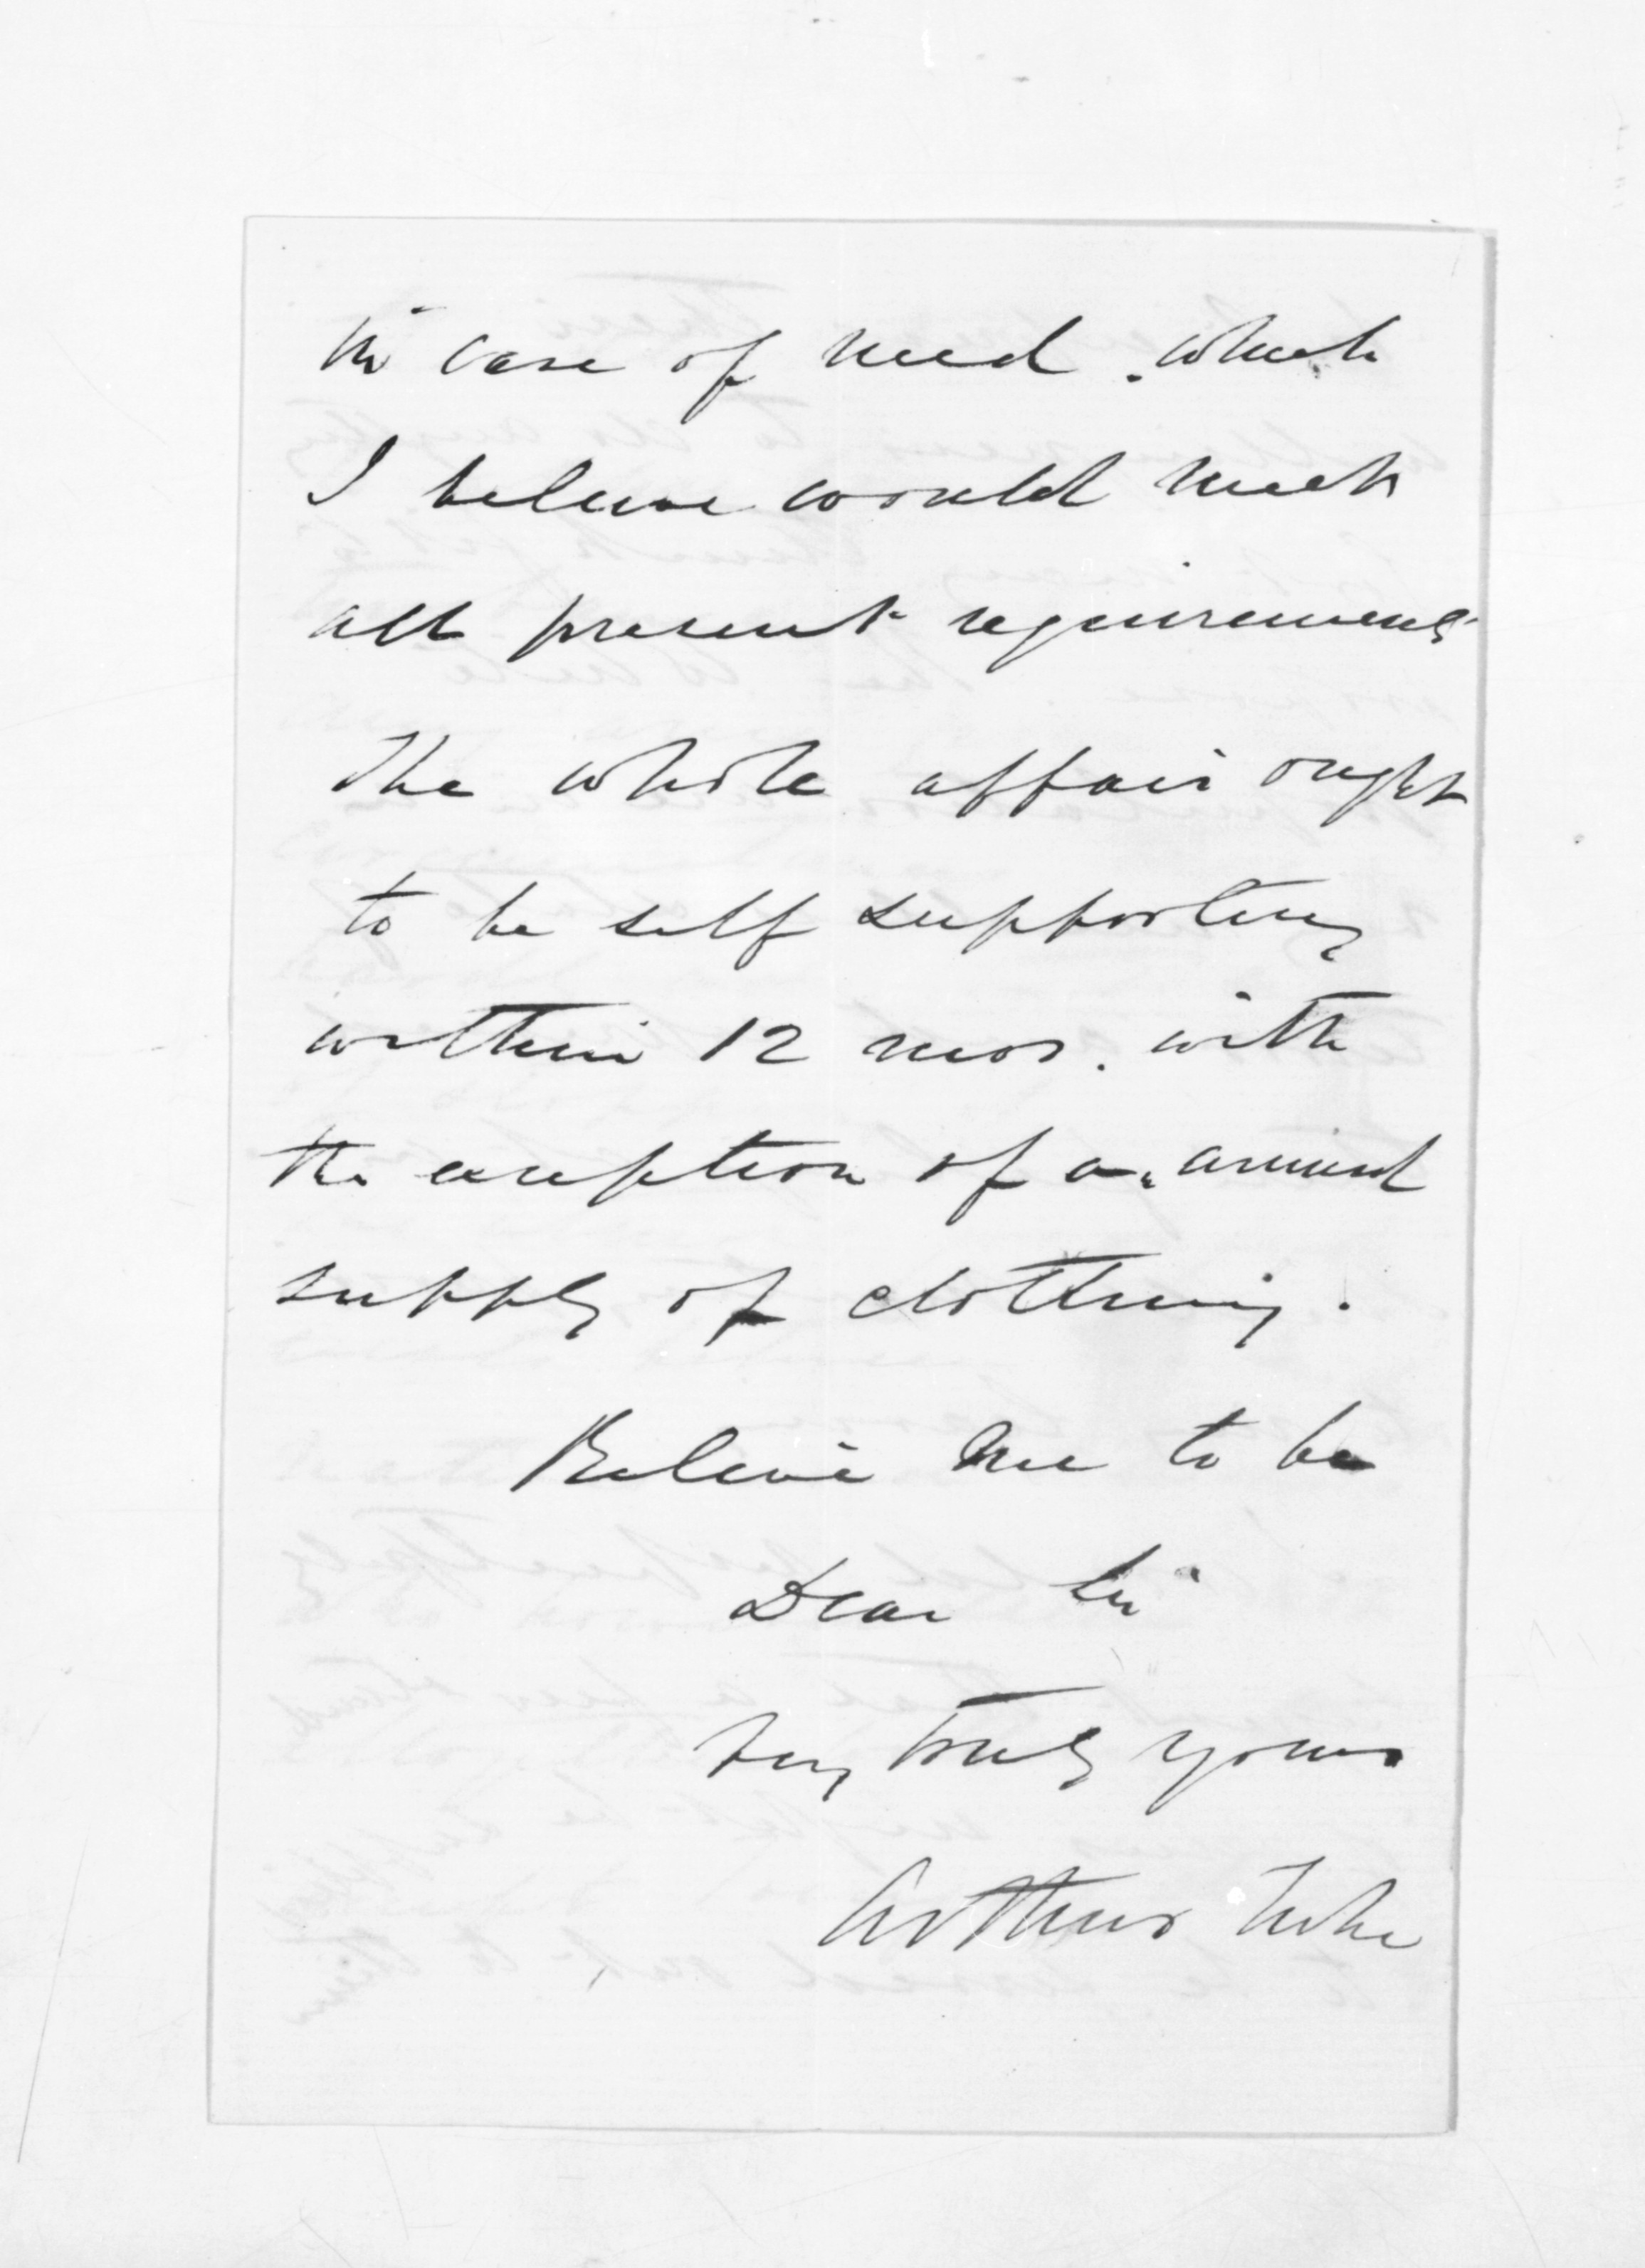 in case of need. which
I believe would meet
all present requirements
The whole affair ought
to be self supporting
within 12 mos. with
the exception of an annual
supply of clothing.
Believe me to be
Dear Sir
Very truly yours
Arthur